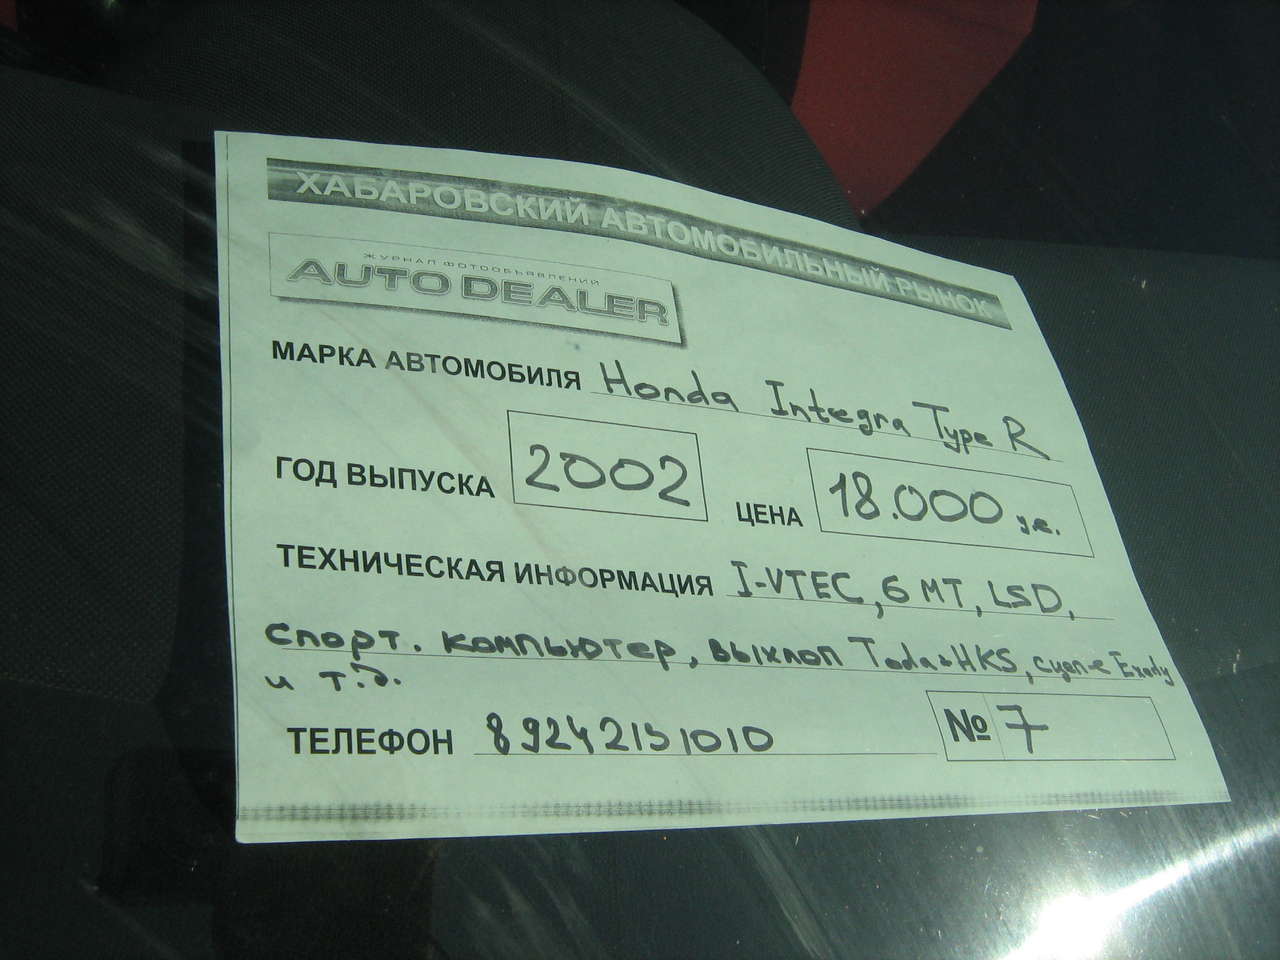 ХАБАРОВСКИЙ АВТОМОБИЛЬНЫЙ РЫНОК
ЖУРНАЛ ФОТООБЪЯВЛЕНИЙ
AUTO DEALER
МАРКА АВТОМОБИЛЯ Honda Integra Type R
ГОД ВЫПУСКА 2002 ЦЕНА 18.000 у.е.
ТЕХНИЧЕСКАЯ ИНФОРМАЦИЯ I-VTEC, 6 MT, LSD,
спорт. компьютер, выхлоп Toda&HKS, сцеп-е Exedy
и т.д.
ТЕЛЕФОН 89242151010 № 7